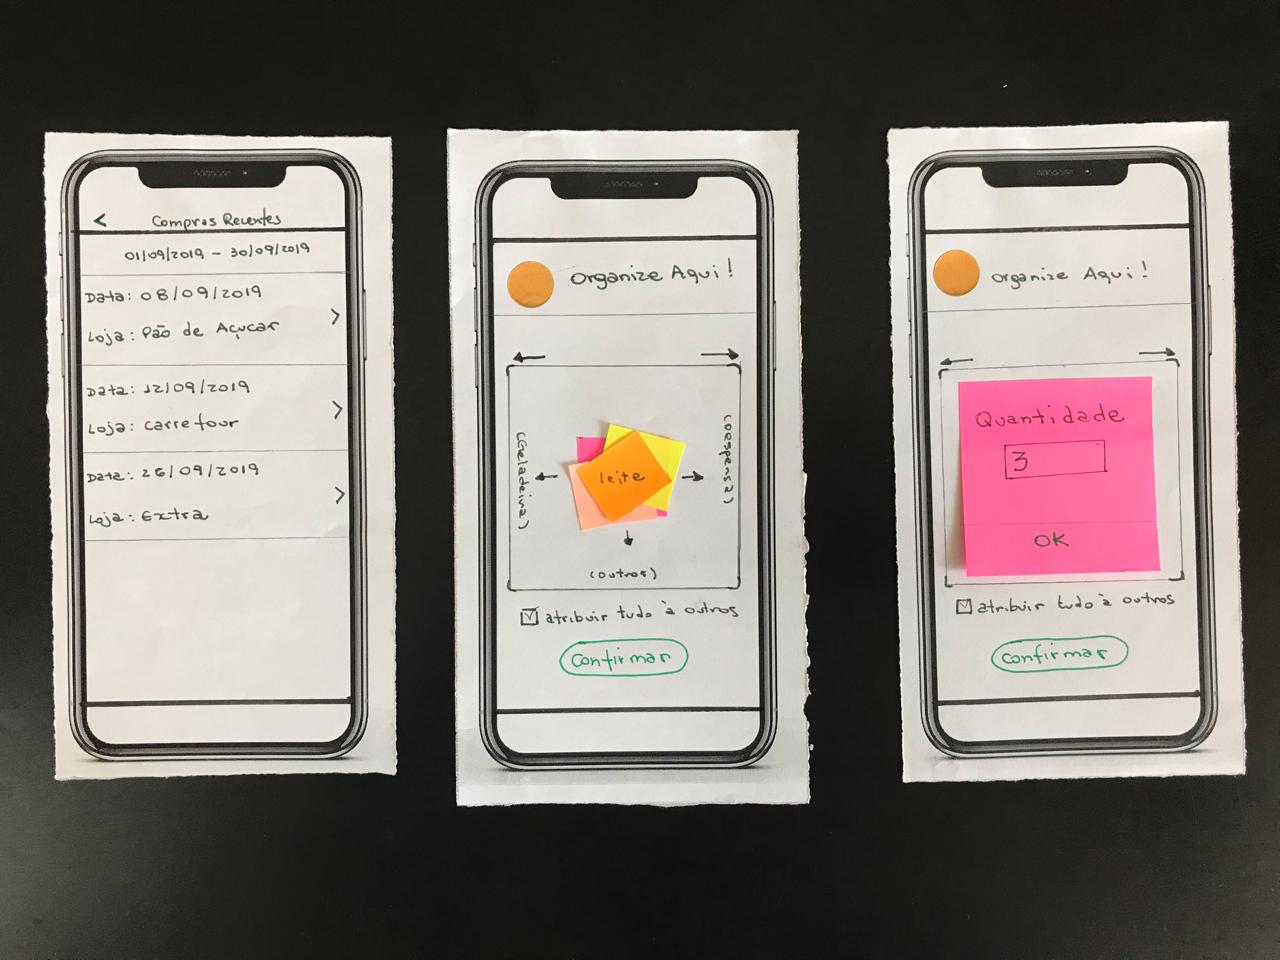 <
Compras Recentes
01/09/2019 - 30/09/2019
Data: 08/09/2019
Loja: Pão de Açucar
>
Data: 12/09/2019
Loja: Carrefour
>
Data: 26/09/2019
Loja: Extra
>
Organize Aqui!
(Geladeira)
leite
(Despensa)
(outros)
atribuir tudo à outros
Confirmar
Organize Aqui!
Quantidade
3
OK
atribuir tudo à outros
Confirmar